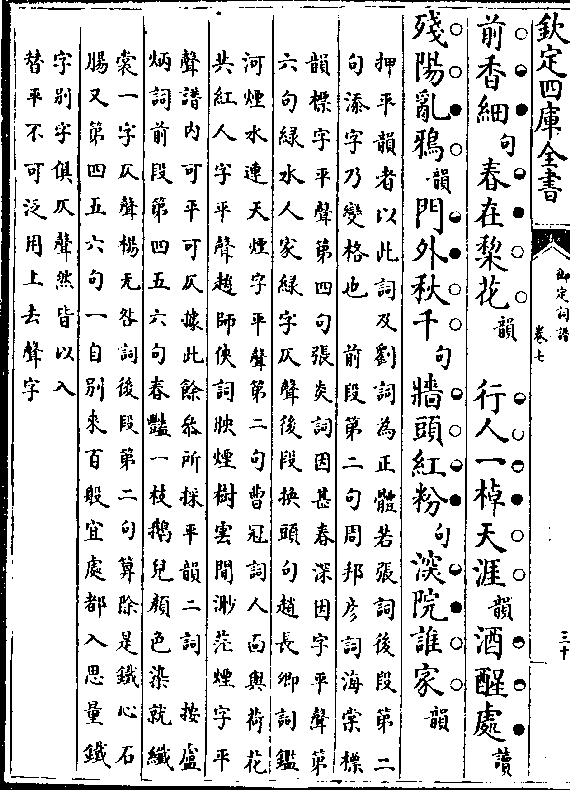 欽定四庫全書
御定詞譜
卷七
三十
前香細句春在棃花韻 行人一棹天涯韻酒醒處讀
殘陽亂鴉韻門外秋千句牆頭紅粉句深院誰家韻
押平韻者以此詞及劉詞為正體若張詞後段第二
句添字乃變格也 前段第二句周邦彦詞海棠標
韻標字平聲第四句張炎詞因甚春深因字平聲第
六句緑水人家緑字仄聲後段換頭句趙長卿詞鑑
河煙水連天煙字平聲第二句曹冠詞人面與荷花
共紅人字平聲趙師俠詞映煙樹雲間渺茫煙字平
聲譜内可平可仄據此餘叅所採平韻二詞 按盧
炳詞前段第四五六句春豔一枝鵝兒顏色染就纖
裳一字仄聲楊无咎詞後段第二句算除是鐵心石
腸又第四五六句一自别來百般宜處都入思量鐵
字别字俱仄聲然皆以入
替平不可泛用上去聲字